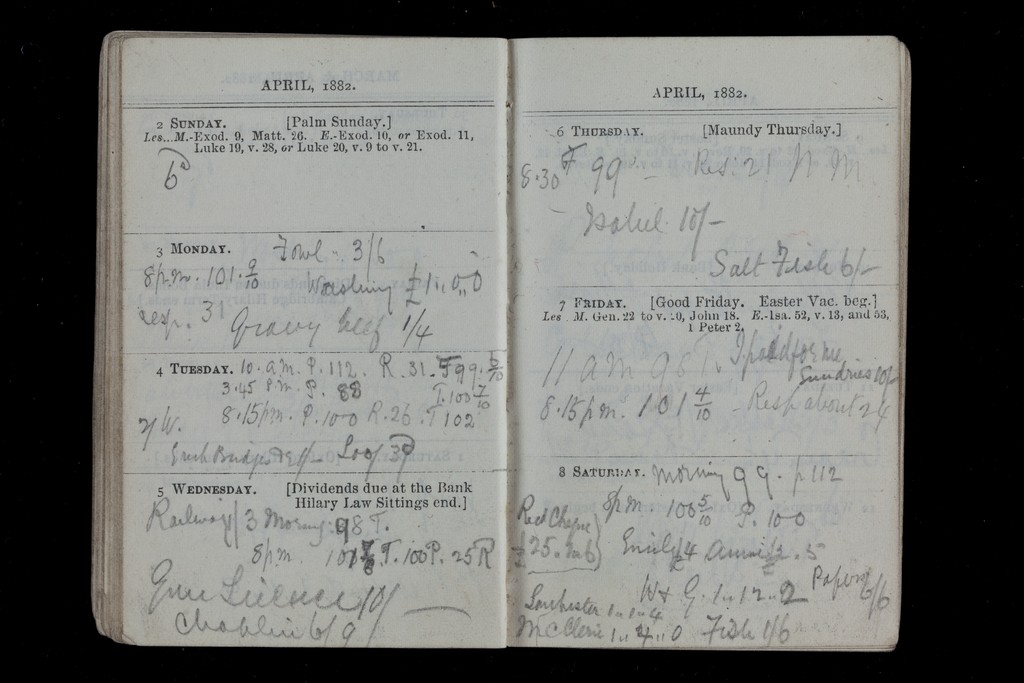 APRIL, 1882.
2 SUNDAY. [Palm Sunday.]
Les...M.-Exod. 9, Matt. 26. E.-Exod. 10, or Exod. 11,
Luke 19, v. 28, or Luke 20, v. 9 to v. 21.
6d
3 MONDAY. Fowl - 3/6
8 p.m. 101.9/10 Washing £1..0..0
resp. 31 Gravy beef 1/4
4 TUESDAY. 10. a.m. P. 112. R. 31. F 99.
3.45 P.M. P. 88 T. 100 7/10
8.15 p.m. P. 100 R. 26. T 102
5 WEDNESDAY. [Dividends due at the Bank
Hilary Law Sittings end.]
Railway/ 3 Morng. 98 T.
8 p.m. T. 100 P. 25 R
Gun Licence 10/-
6/9
APRIL, 1882.
6 THURSDAY. [Maundy Thursday.]
8.30 99 Res: 21
Isabel 10/-
Salt Fish 6/-
7 FRIDAY. [Good Friday. Easter Vac. beg.]
Les. M. Gen. 22 to v. 20, John 18. E.-Isa. 52, v. 13, and 53,
1 Peter 2.
11 AM 98 T. I paid for me
Sundries 10/-
8.15 p.m. 101 4/10 - Resp about 24
8 SATURDAY. Morning 99. p 112
8 p.m. 100 5/10 P. 100
Red Cheque
£25
Emily £4 Annie £3. 5
W & G. 1..12..2 Papers 6/6
1..1..4
1..4..0 Fish 1/6